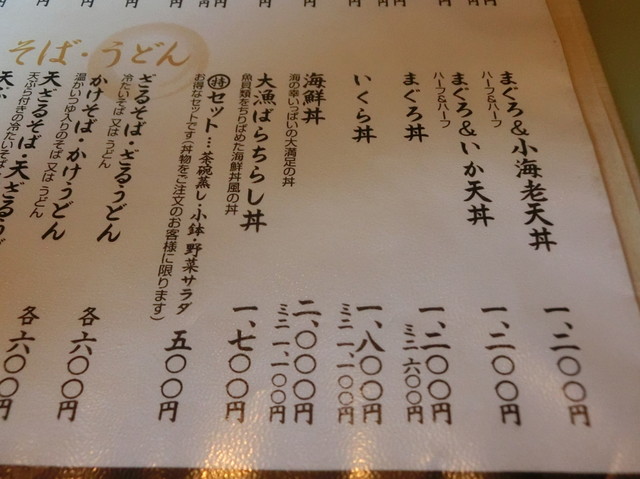 まぐろ&小海老天丼 一、二〇〇円
ハーフ&ハーフ
まぐろ&いか天丼 一、二〇〇円
ハーフ&ハーフ
まぐろ丼 一、二〇〇円
ミニ 六〇〇円
いくら丼 一、八〇〇円
ミニ 一、一〇〇円
海鮮丼 二、〇〇〇円
海の幸いっぱいの大満足の丼 ミニ 一、一〇〇円
大漁ばらちらし丼 一、七〇〇円
魚貝類をちりばめた海鮮丼風の丼
㊕セット…茶碗蒸し・小鉢・野菜サラダ 五〇〇円
お得なセットです(丼物をご注文のお客様に限ります)
そば・うどん
ざるそば・ざるうどん 各 六〇〇円
冷たいそば 又は うどん
かけそば・かけうどん 各 六〇〇円
温かいつゆ入りのそば 又は うどん
天ざるそば・天ざるうど
天ぷら付きの冷たいそば